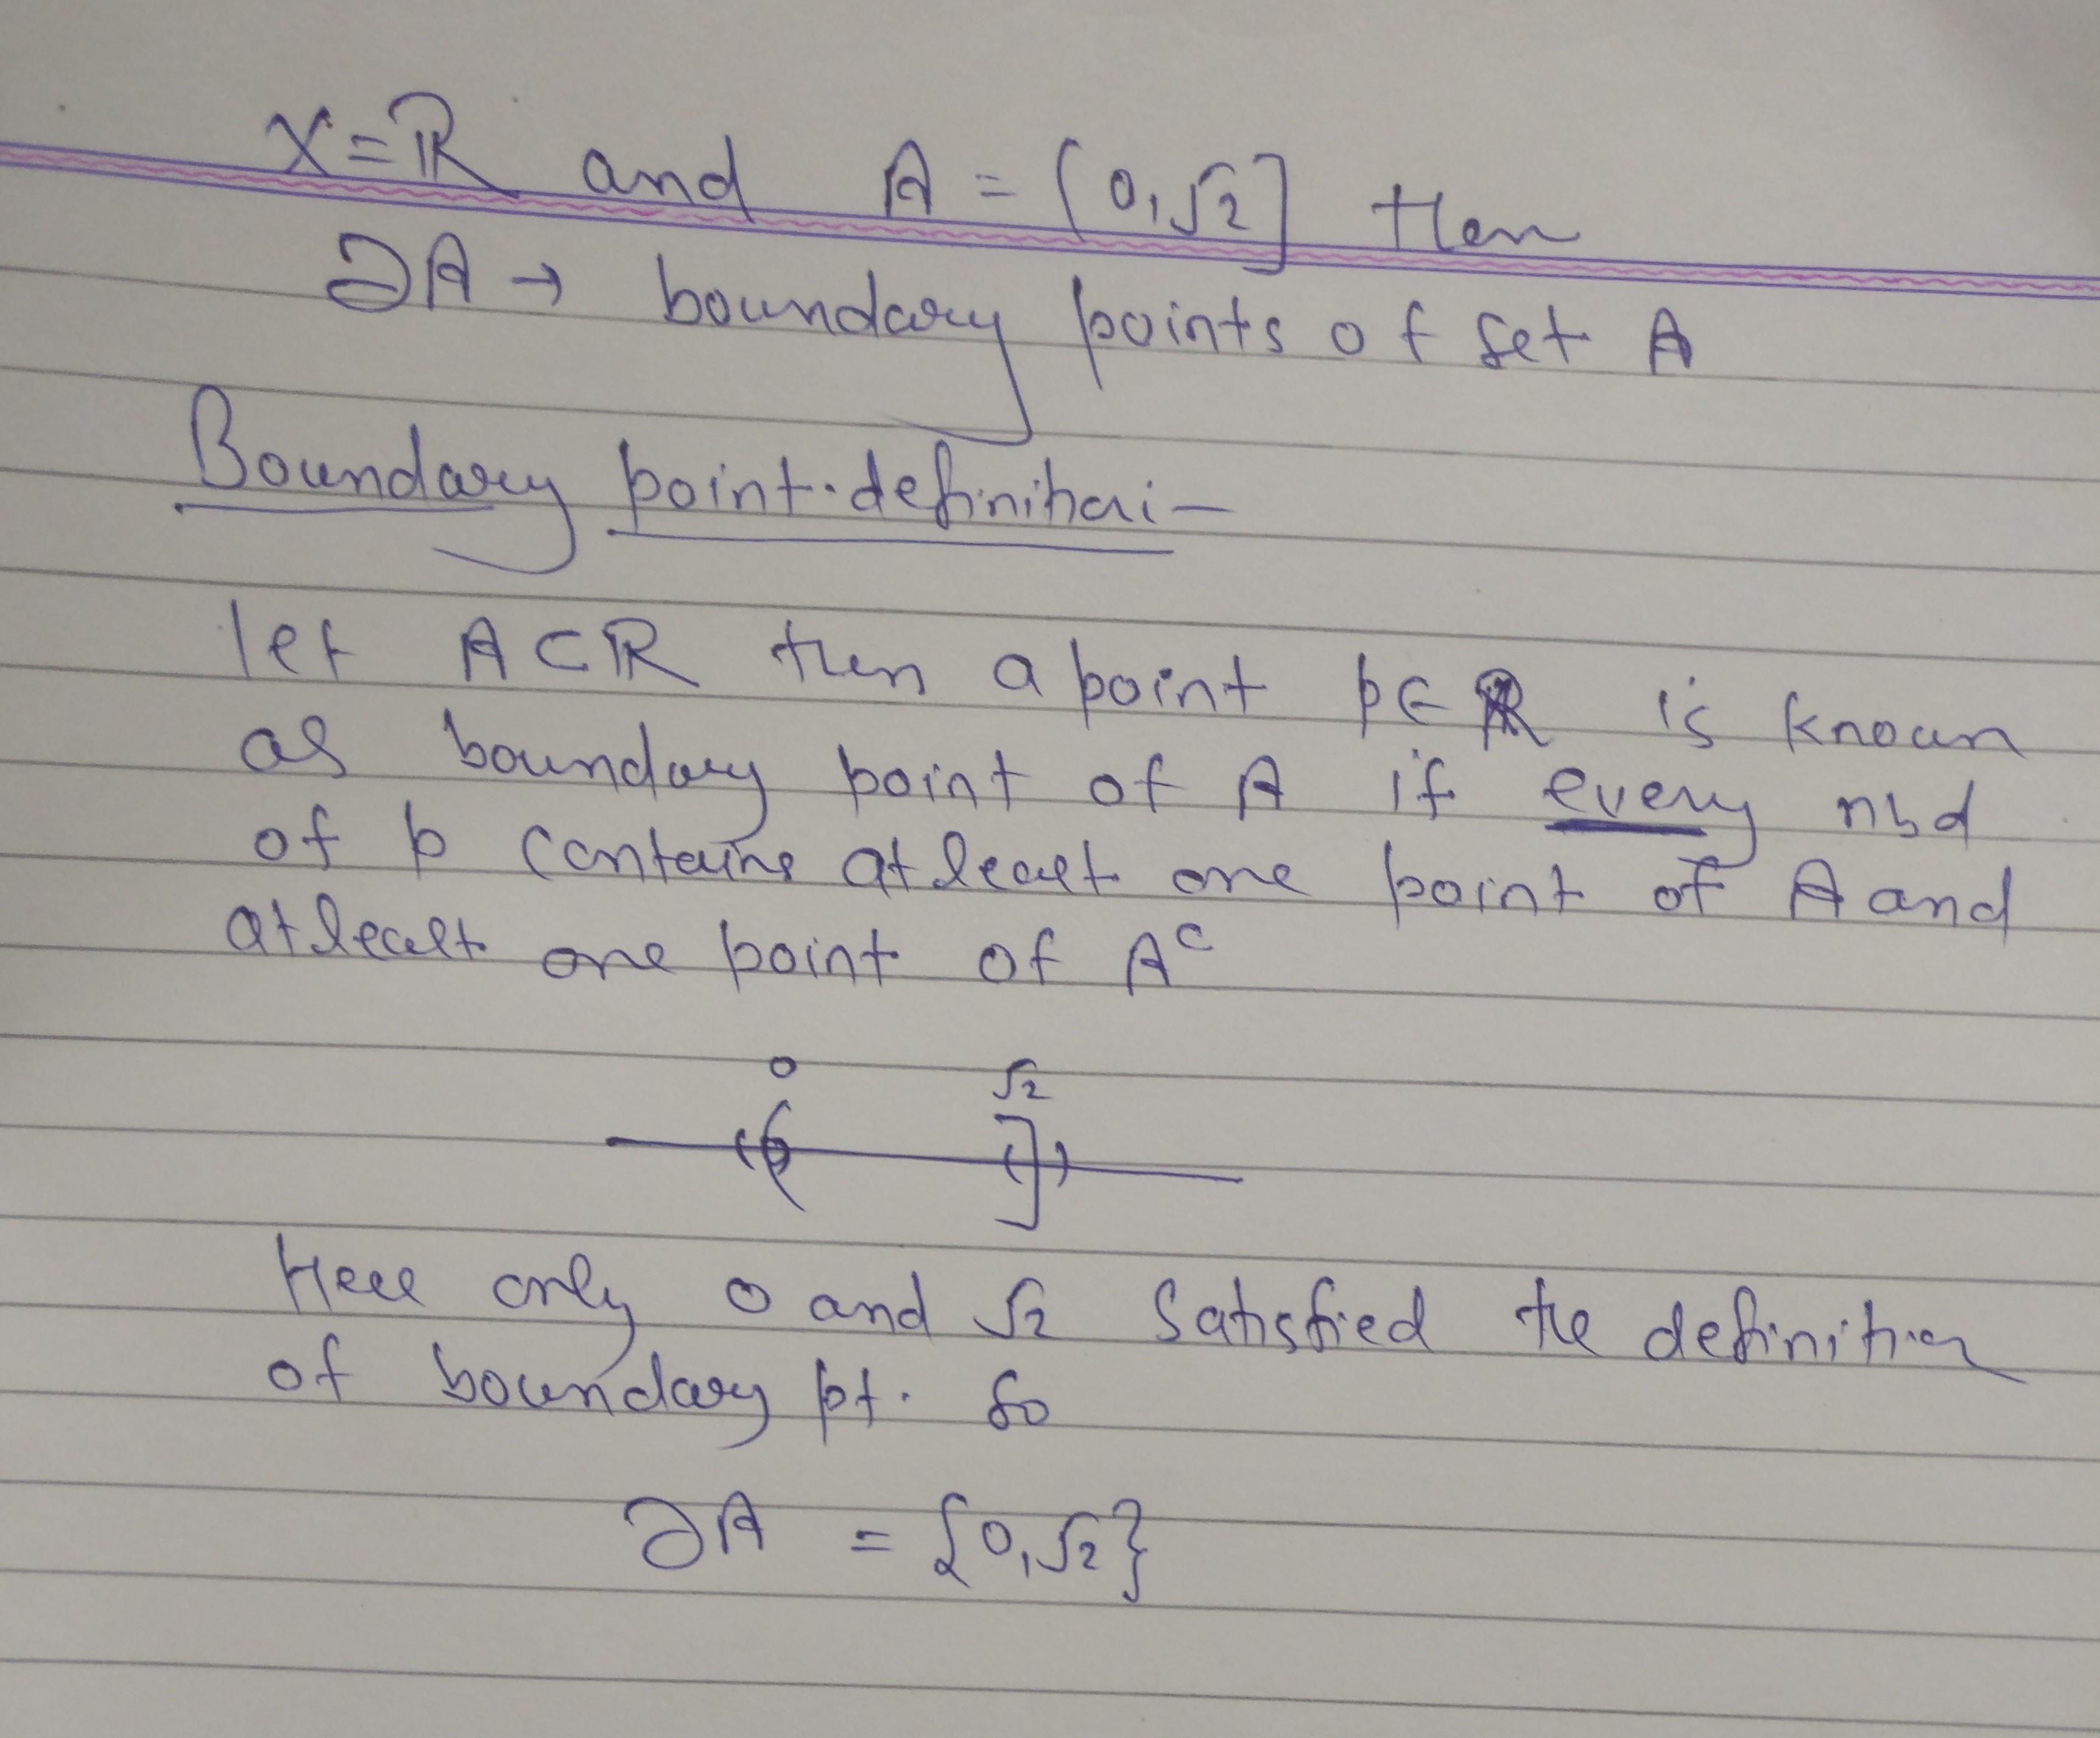 X=ℝ and A = (0,√2] then
∂A → boundary points of set A
Boundary point definition:-
let A⊂ℝ then a point p∈ℝ is known
as boundary point of A if every nbd
of p contains atleast one point of A and
atleast one point of Aᶜ
0 √2
Here only 0 and √2 satisfied the definition
of boundary pt. So
∂A = {0,√2}